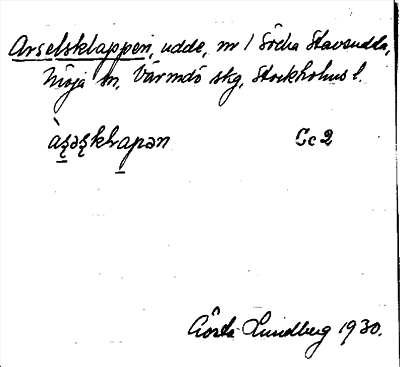 Arselsklappen, udde, nr 1 Södra Stavsudda,
Möja sn, Värmdö skg, Stockholms l.
Cc2
Gösta Lundberg 1930.